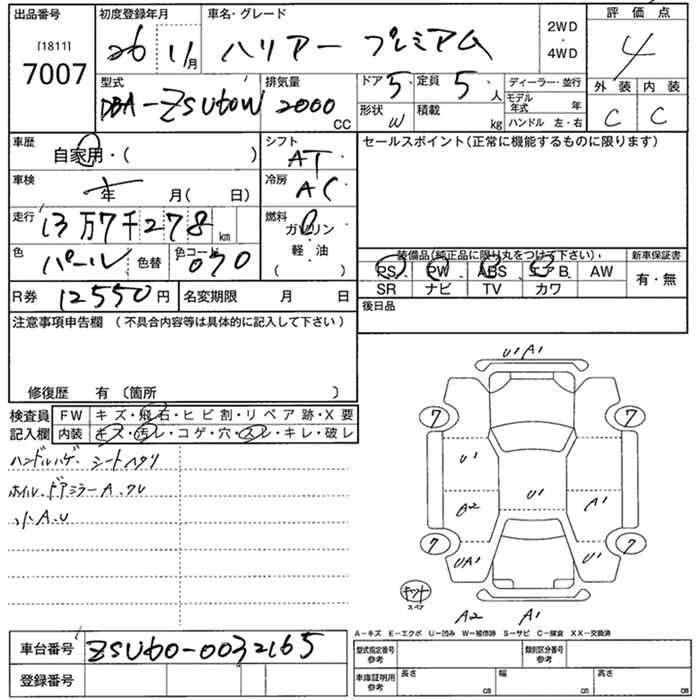 出品番号 初度登録年月 車名・グレード 評価点
[1811]
7007
26 11月 ハリアー プレミアム 2WD・4WD 4
型式 排気量 ドア 5 定員 5人 ディーラー・並行 外装 内装
DBA-ZSU60W 2000CC 形状 W 積載 kg モデル年式 年 C C
ハンドル 左・右
車歴 自家用・( ) シフト AT セールスポイント(正常に機能するものに限ります)
車検 年 月( 日) 冷房 AC
走行 13万7千278km 燃料 ガソリン・軽・油 ( )
色 パール 色替 色コード 070
装備品(純正品に限り丸をつけて下さい) 新車保証書
PS PW ABS エアB AW 有・無
SR ナビ TV カワ
R券 12550円 名変期限 月 日 後日品
注意事項申告欄 (不具合内容等は具体的に記入して下さい)
修復歴 有〔箇所 〕
検査員記入欄 FW キズ・飛石・ヒビ割・リペア跡・X要
内装 キズ・汚レ・コゲ・穴・スレ・キレ・破レ
ハンドルハゲ、シートヘタリ
ホイル、ドアミラーA、スレ
小A、U
U1 A1
7 7
U1
A2 U1 A1
7 7
UA1 U1
キット
スペア
A2 A1
A−キズ E−エクボ U−凹み W−補修跡 S−サビ C−腐食 XX−交換済
車台番号 ZSU60-0032165 型式指定番号 参考 類別区分番号 参考
登録番号 車庫証明用 参考 長さ cm 幅 cm 高さ cm